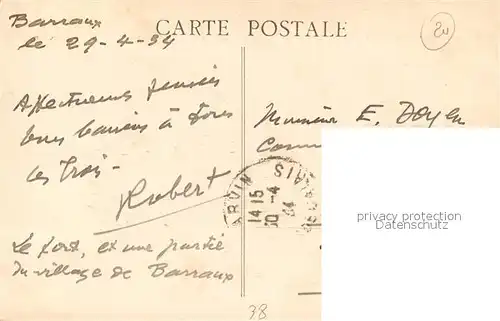 CARTE POSTALE
20
Barraux
le 29-4-34
Affectueuses pensées
bons baisers à tous
les trois -
Robert
Le fort, et une partie
du village de Barraux
Monsieur E. Doyen
14 15
30 -4
34
privacy protection
Datenschutz
38